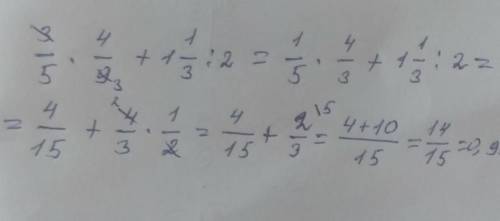 3/5 · 4/9 3 + 1 1/3 : 2 = 1/5 · 4/3 + 1 1/3 : 2 =
= 4/15 + 2 4/3 · 1/2 = 4/15 + 2/3 \5 = 4+10/15 = 14/15 = 0,9